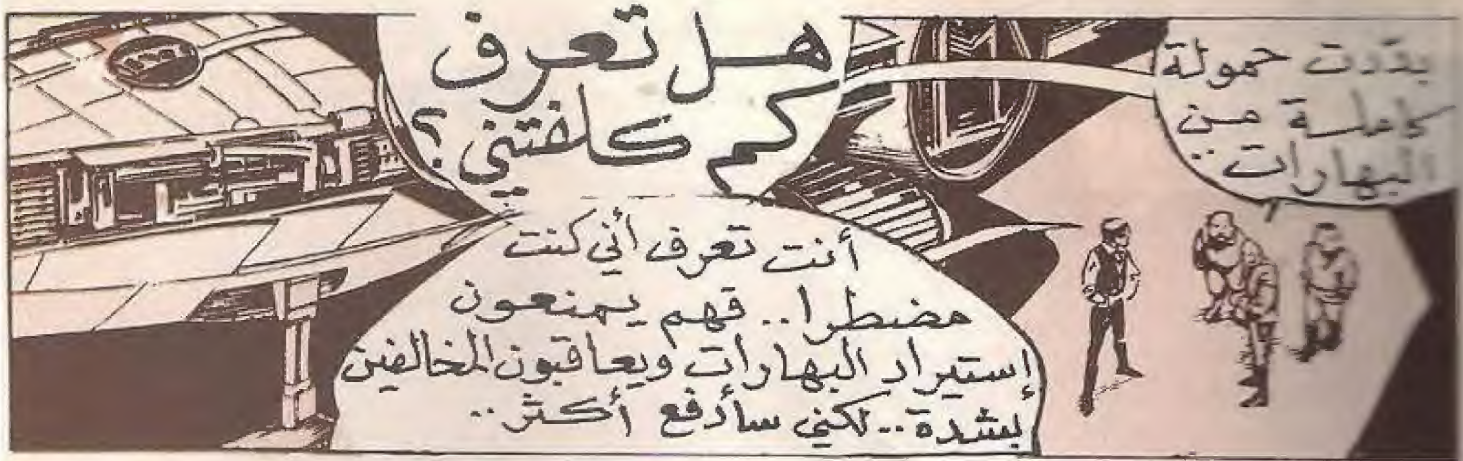 بدّدت حمولة
كاملة من..
البهارات..
هل تعرف
كم كلفتني؟
أنت تعرف أني كنت
مضطرا.. فهم يمنعون
إستيراد البهارات ويعاقبون المخالفين
بشدة.. لكني سأدفع أكثر..